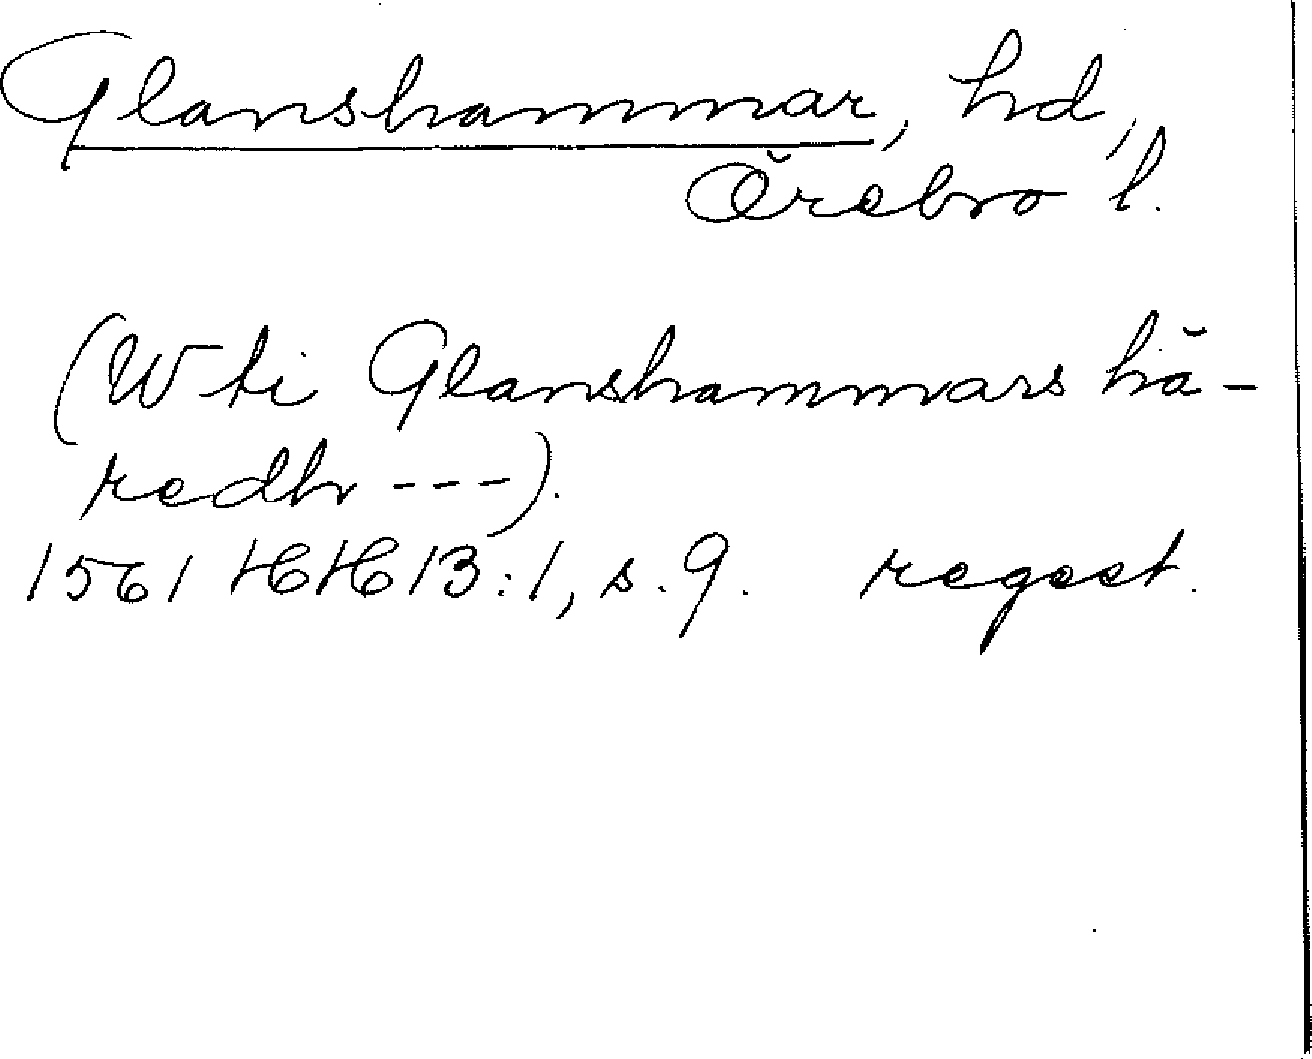 Glanshammar, hd,
Örebro l.
(W ti Glanshammars hä-
redh ---).
1561 HH 13:1, s. 9. regest.